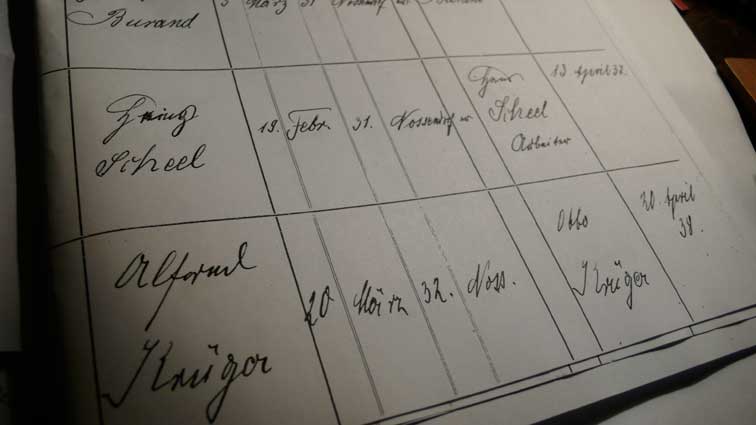 Burand
März 31
Scheel
19. Febr. 31. Nossendorf
Hans
Scheel
Arbeiter
13. April 37.
Alfred
Krüger
20 März 32. Noss.
Otto
Krüger
20. April
38.